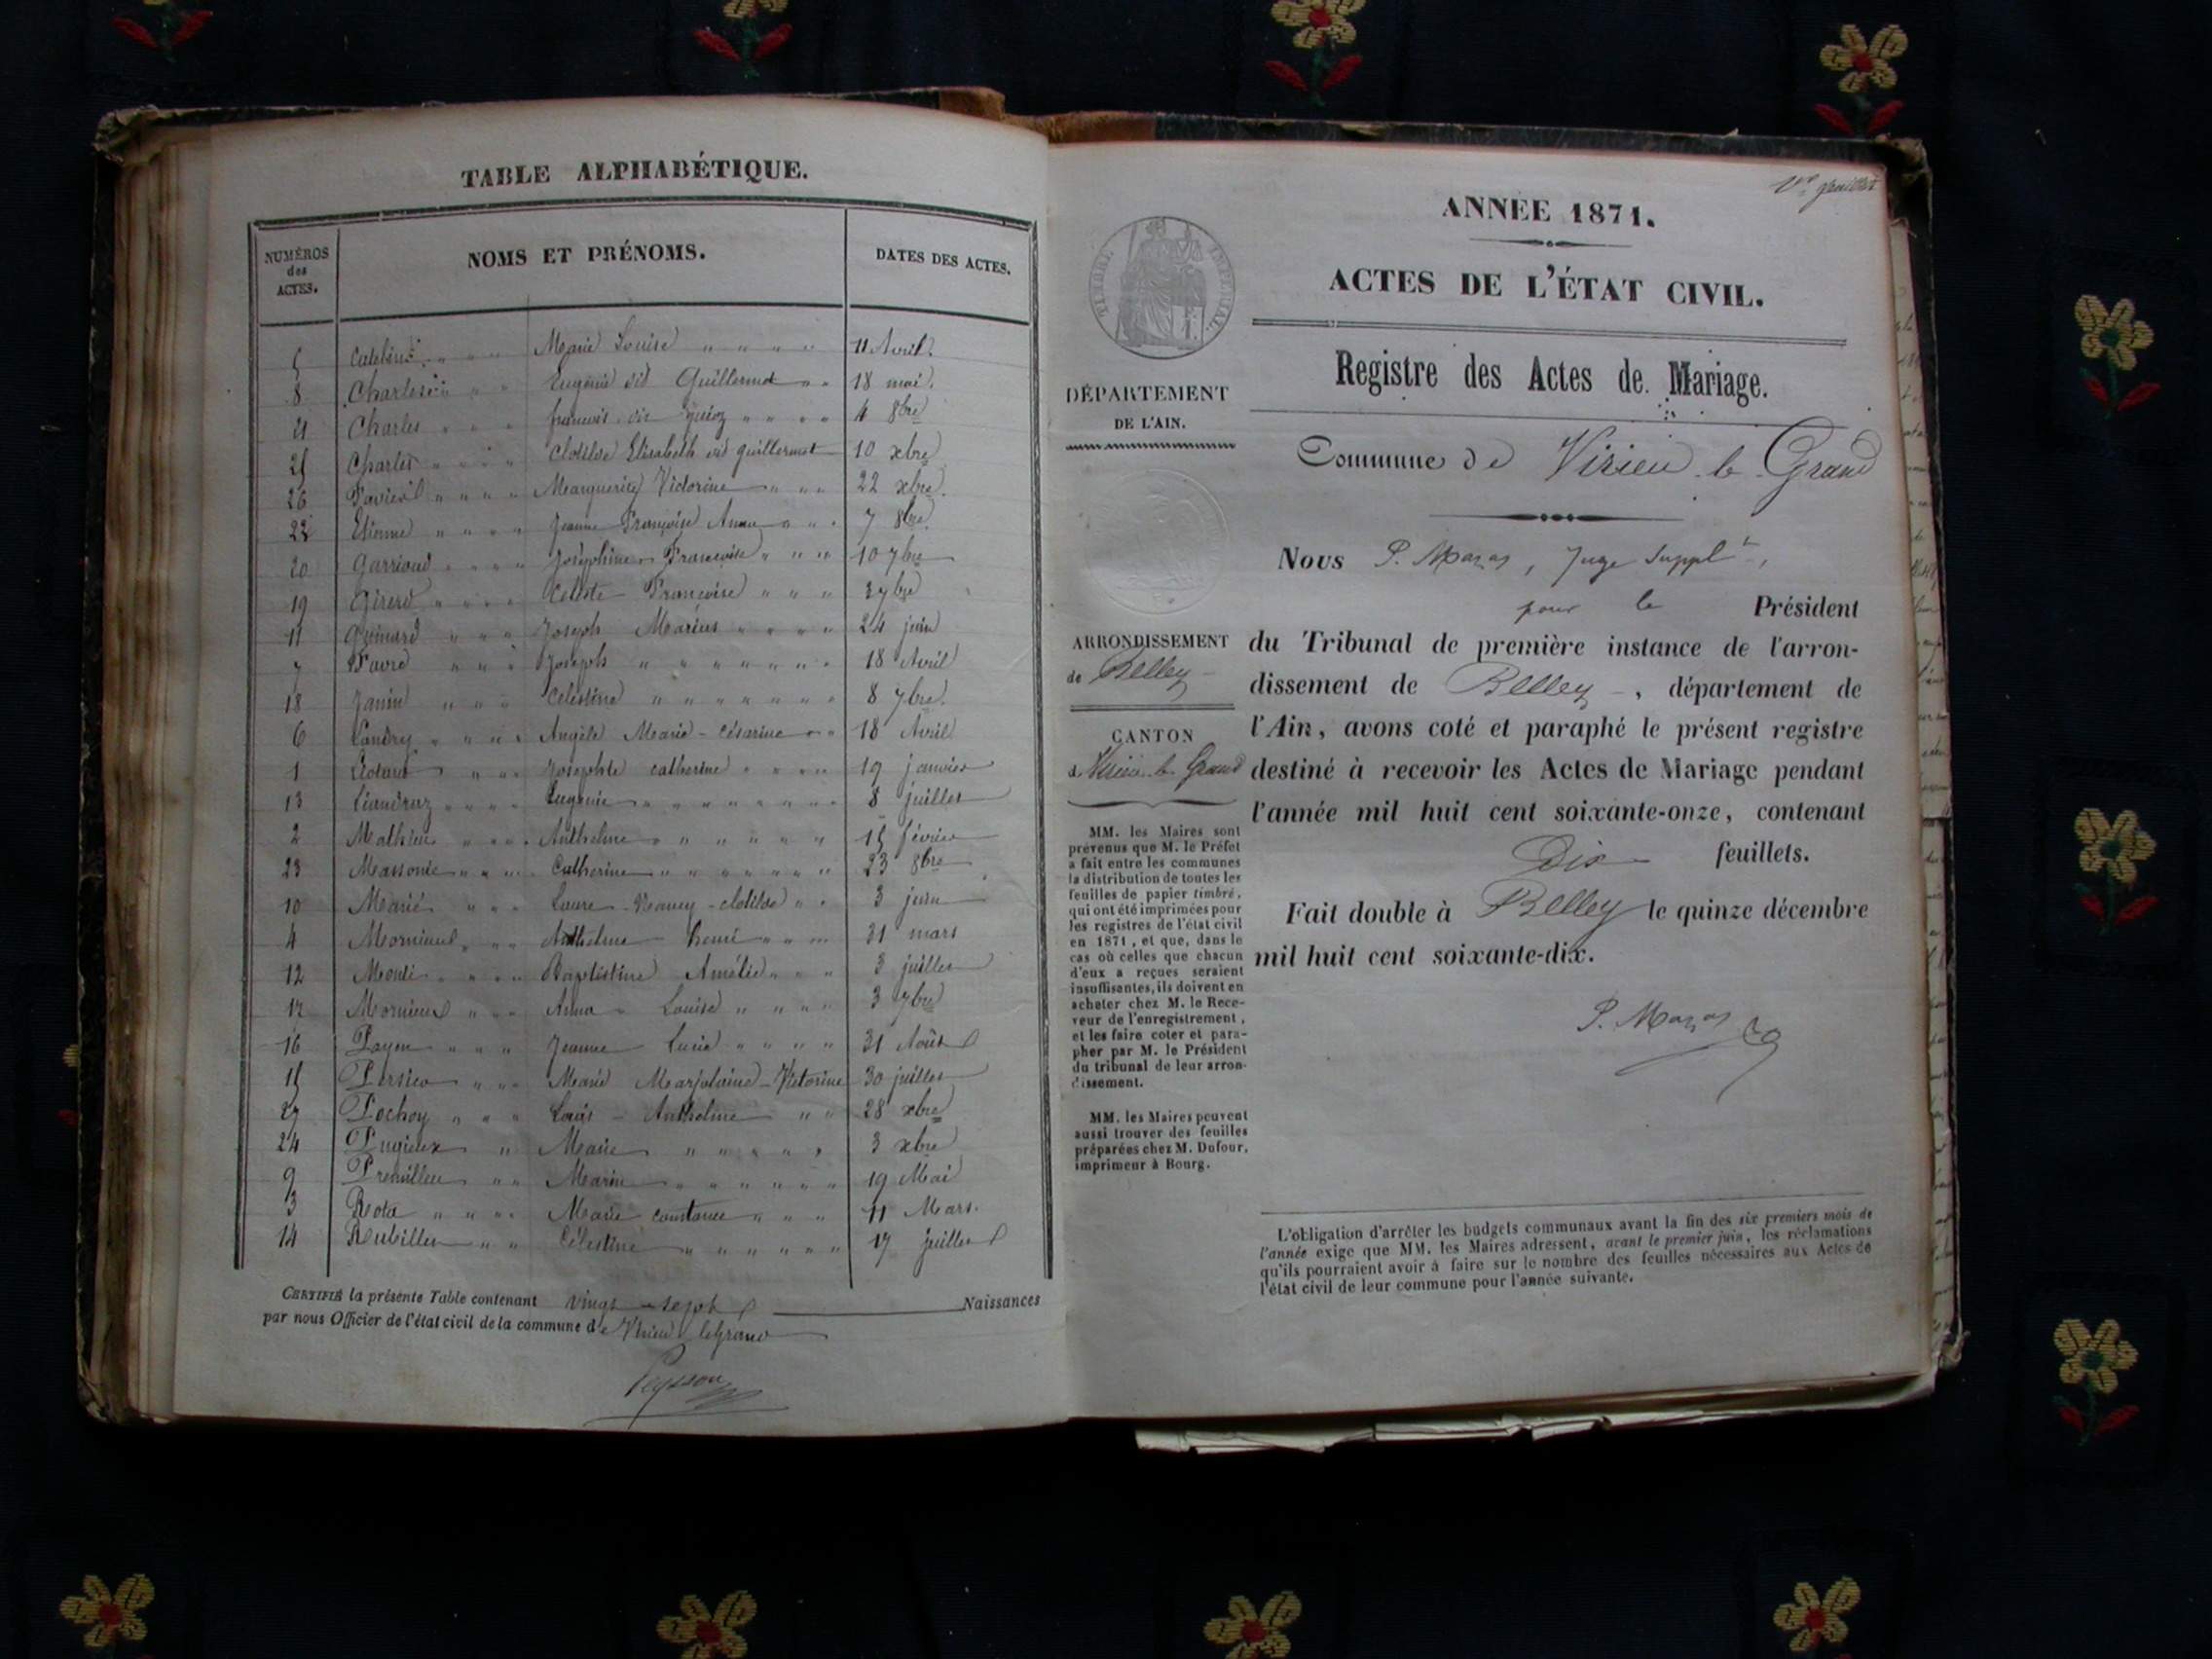 TABLE ALPHABÉTIQUE.
NUMÉROS des ACTES.
NOMS ET PRÉNOMS.
DATES DES ACTES.
5 Marie Louise " " " " 11 Avril.
8 Eugénie dit Guillermet " " 18 mai.
Charles " " " " " " " 4 8bre
25 Charles " " " Clotilde Elisabeth dit guillermet 10 xbre
26 " " " " Marguerite Victorine " " " 22 xbre.
22 Etienne " " " " Jeanne Françoise Anna " " " 7 8bre
20 " " " " Joséphine Françoise " " " 10 7bre
19 Girerd " " " " Céleste Françoise " " "
11 Guinard " " " Joseph Marius " " " " 24 juin
7 Favre " " " Joseph " " " " " " " 18 Avril
18 Janin " " " Célestine " " " " " " " 8 7bre.
6 Landry " " " " Angèle Marie - Césarine " " 18 Avril
1 " " " Josephte catherine " " " " 19 janvier
13 " " " " Eugénie " " " " " " " " 8 juillet
2 Mathieu " " " " Anthelme " " " " " " 15 février
23 Massonie " " " " Catherine " " " " " " " 23 8bre
10 Marie " " " Laure - Nancy - clotilde " " 3 juin
4 Mornieux " " " Anthelme " " " 31 mars
12 " " " " Baptistine Amélie " " " 3 juillet
17 Mornieux " " " Anna - Louise " " " " 3 7bre
16 Payen " " " " Jeanne Lucie " " " " 31 Août
15 Persico " " " Marie Marjolaine - Victorine 30 juillet
27 Pochoy " " " Louis - Anthelme " " 28 xbre
24 Pugieux " Marie " " " " " 3 xbre
9 " " Marin " " " " " " 19 Mai
3 " " " " Marie constance " " " 11 Mars.
14 Rubillet " " Célestine " " " " " " 17 juillet
CERTIFIÉ la présente Table contenant vingt-sept Naissances
par nous Officier de l'état civil de la commune de Virieu leGrand
Peysson
1er feuillet
ANNÉE 1871.
ACTES DE L'ÉTAT CIVIL.
Registre des Actes de Mariage.
Commune de Virieu le Grand
Nous P. Mazas, Juge Supplt,
pour le Président
du Tribunal de première instance de l'arron-
dissement de Belley, département de
l'Ain, avons coté et paraphé le présent registre
destiné à recevoir les Actes de Mariage pendant
l'année mil huit cent soixante-onze, contenant
Dix feuillets.
Fait double à Belley le quinze décembre
mil huit cent soixante-dix.
P. Mazas
L'obligation d'arrêter les budgets communaux avant la fin des six premiers mois de
l'année exige que MM. les Maires adressent, avant le premier juin, les réclamations
qu'ils pourraient avoir à faire sur le nombre des feuilles nécessaires aux Actes de
l'état civil de leur commune pour l'année suivante.
TIMBRE IMPÉRIAL
DÉPARTEMENT
DE L'AIN.
ARRONDISSEMENT
de Belley
CANTON
de Virieu le Grand
MM. les Maires sont
prévenus que M. le Préfet
a fait entre les communes
la distribution de toutes les
feuilles de papier timbré,
qui ont été imprimées pour
les registres de l'état civil
en 1871, et que, dans le
cas où celles que chacun
d'eux a reçues seraient
insuffisantes, ils doivent en
acheter chez M. le Rece-
veur de l'enregistrement,
et les faire coter et para-
pher par M. le Président
du tribunal de leur arron-
dissement.
MM. les Maires peuvent
aussi trouver des feuilles
préparées chez M. Dufour,
imprimeur à Bourg.